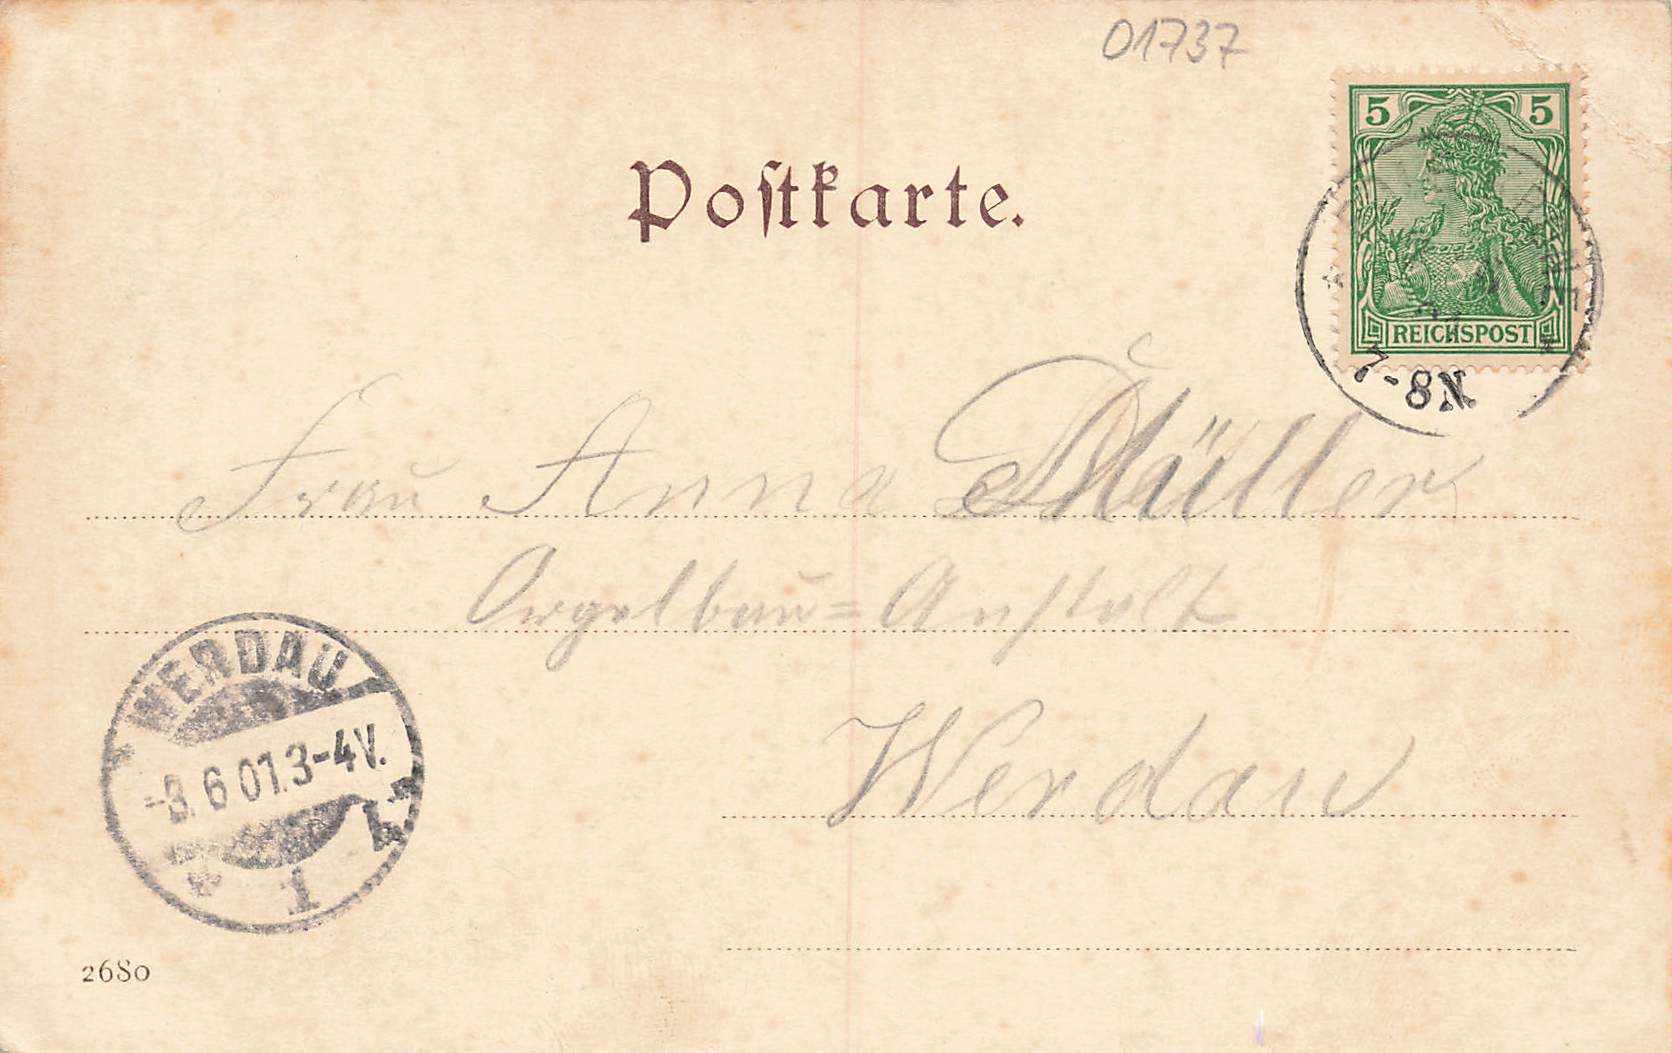 01737
5 5
REICHSPOST
7-8N.
Postkarte.
Frau Anna Müller
Orgelbau=Anstalt
Werdau
WERDAU
-3. 6 01. 3-4V.
1
2680